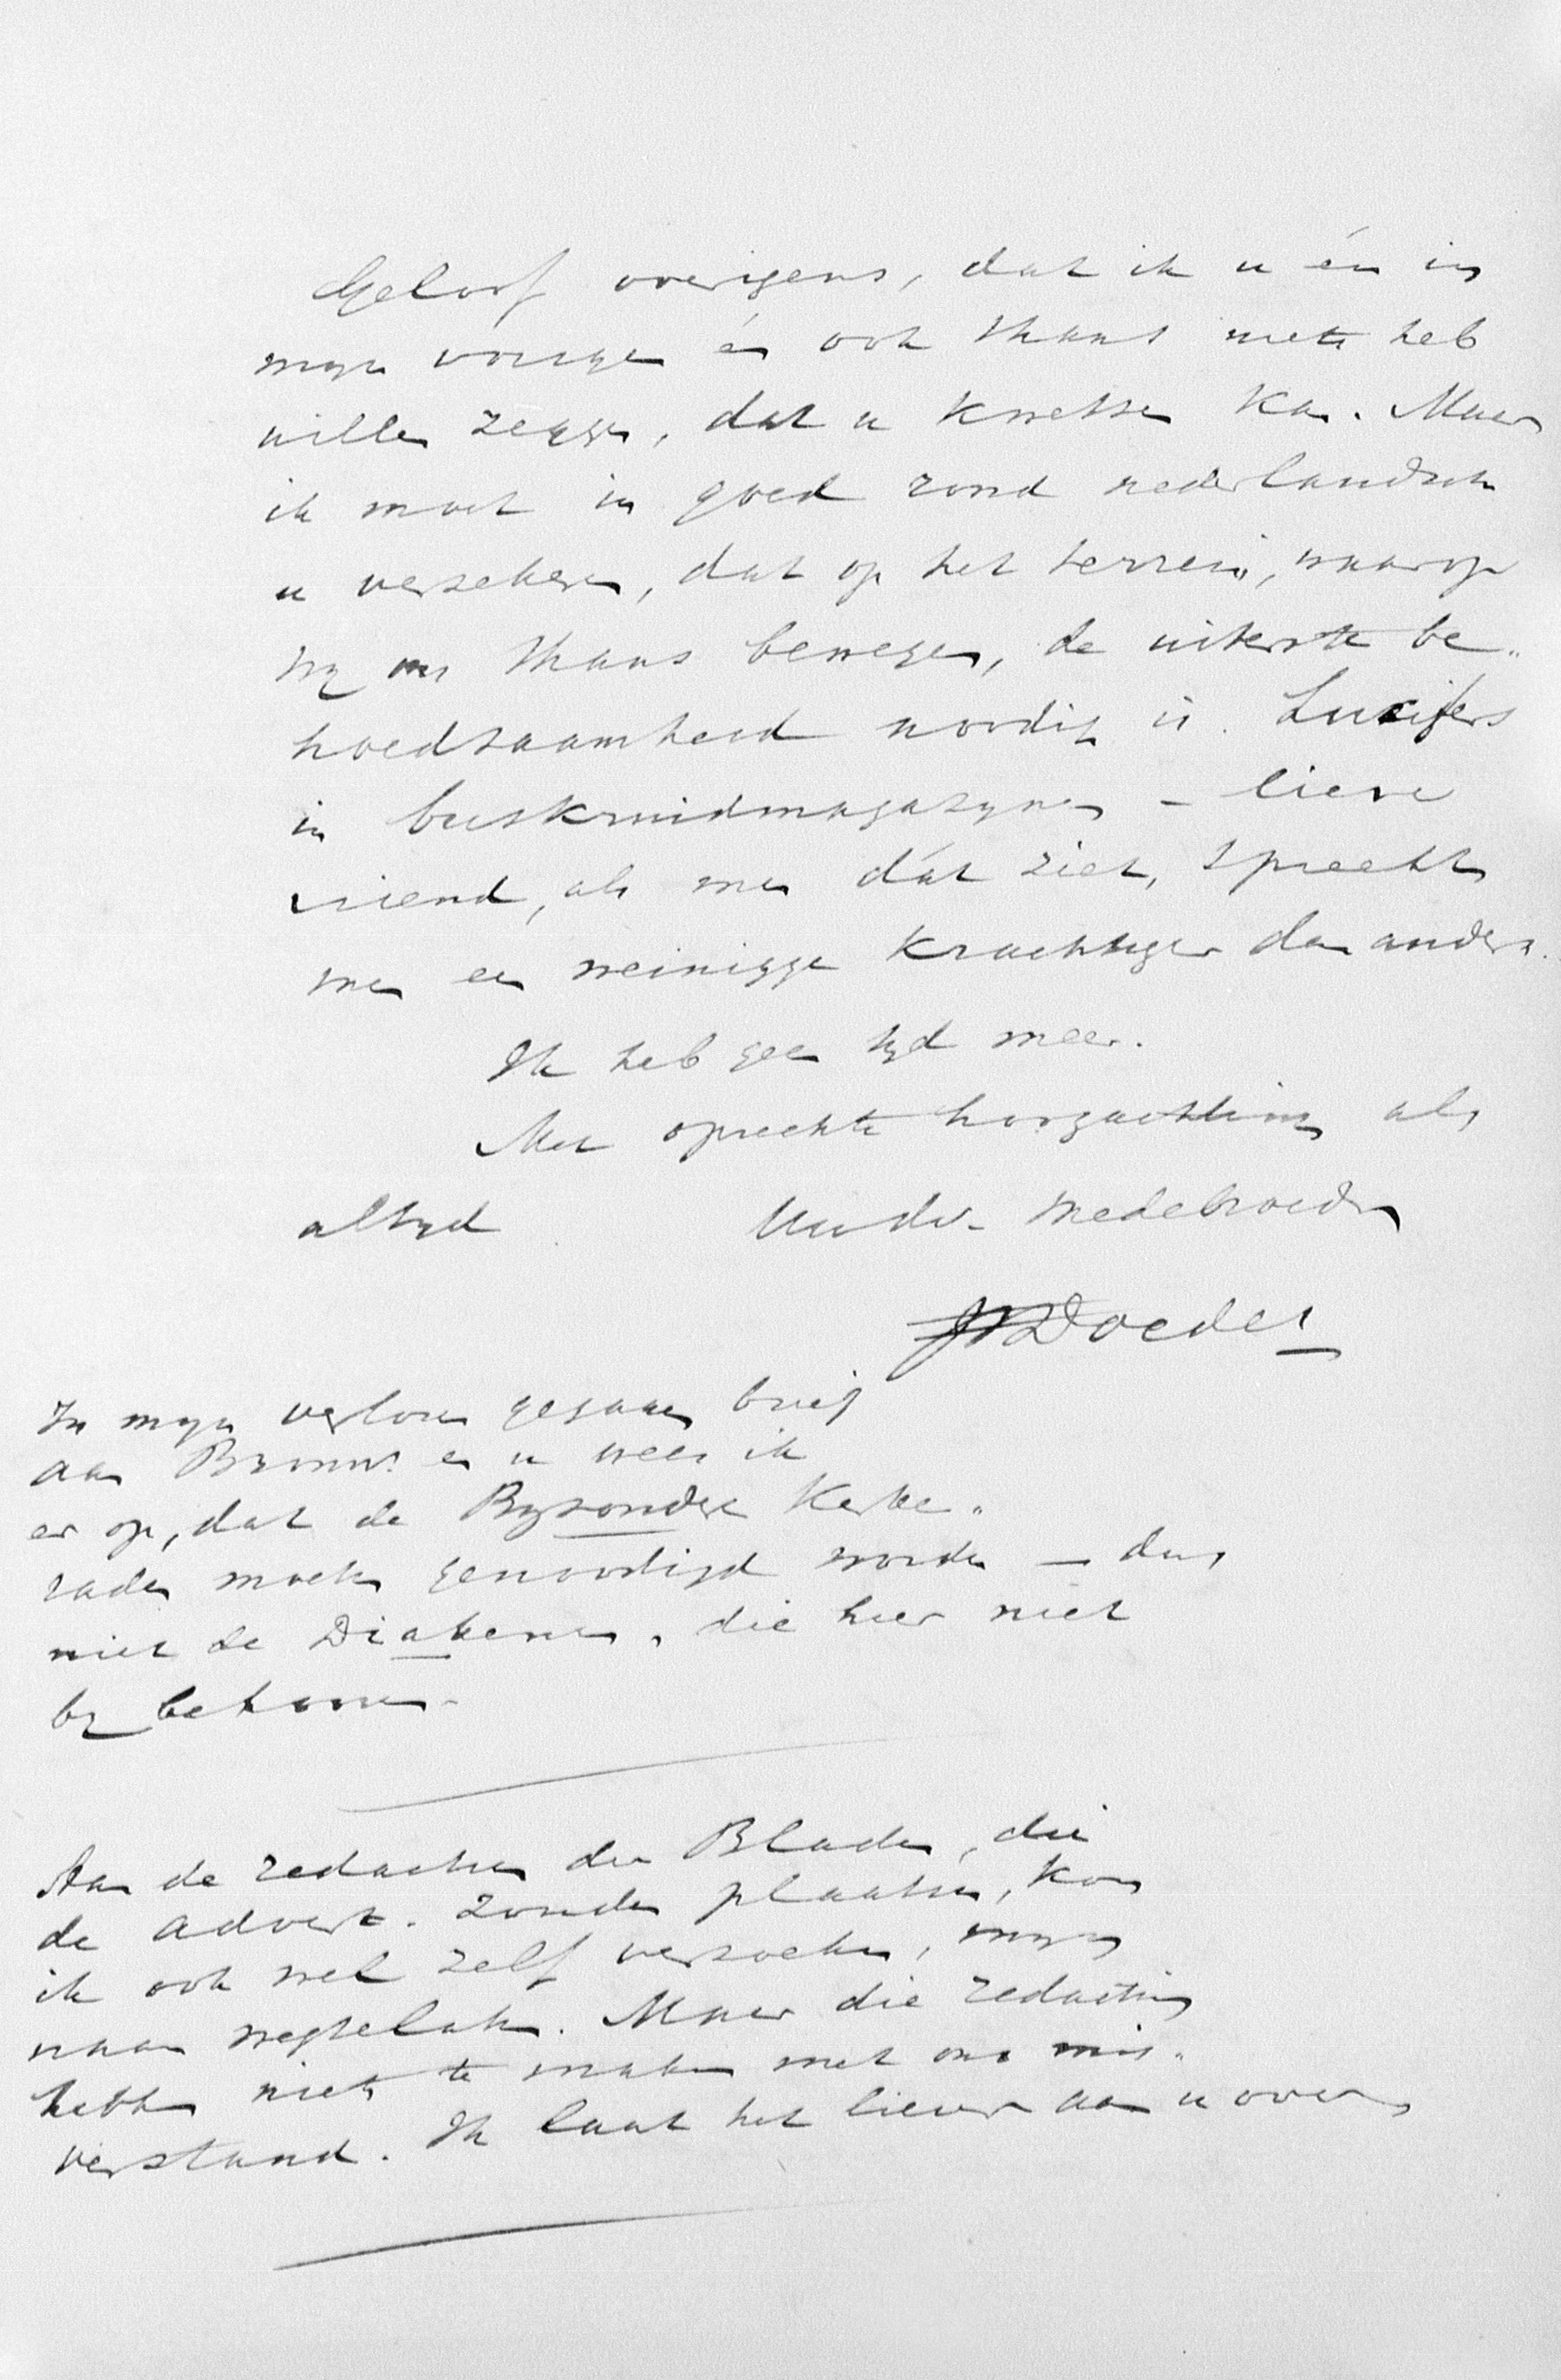 Geloof overigens, dat ik u én in
mijn vorigen én ook thans niets heb
willen zeggen, dat u kwetsen kan. Maar
ik moet in goed rond nederlandsch
u verzekeren, dat op het terrein, waarop
wij ons thans bewegen, de uiterste be„
hoedzaamheid noodig is. Lucifers
in buskruidmagazynen – lieve
vriend, als men dát ziet, spreekt
men een weinigje krachtiger dan anders.
Ik heb geen tyd meer.
Met oprechte hoogachting als
altyd Uw dw. medebroeder
Doedes
In mijn verloren gegane brief
aan Bronsv. en u wees ik
er op, dat de Byzondere Kerke„
raden moeten genoodigd worden – dus
niet de Diakenen, die hier niet
by behooren.
Aan de redactien der Bladen, die
de advert. zouden plaatsen, kon
ik ook wel zelf verzoeken, myn
naam wegtelaten. Maar die redactien
hebben niets te maken met ons mis„
verstand. Ik laat het liever aan u over